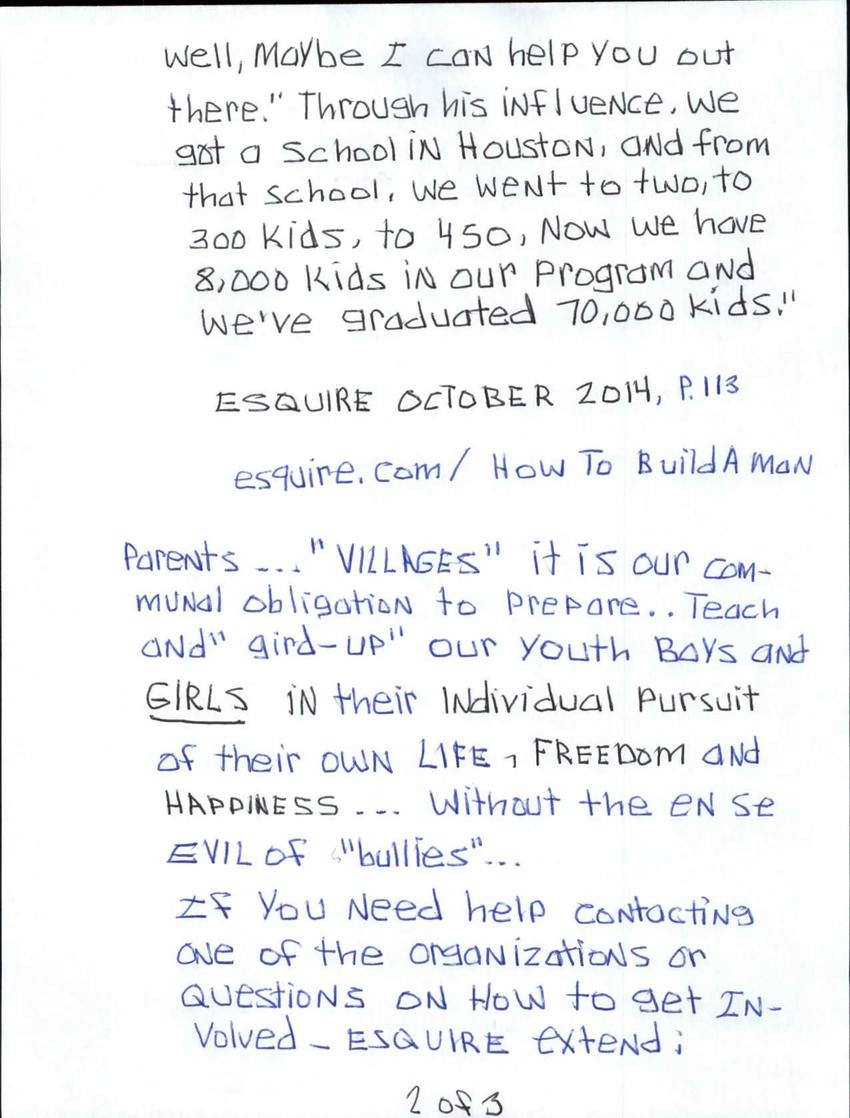 well, Maybe I can help you out
there." Through his influence, we
got a school in Houston, and from
that school, we went to two, to
300 kids, to 450, Now we have
8,000 kids in our program and
we've graduated 70,000 kids."
ESQUIRE OCTOBER 2014, P.113
esquire.com/ How To Build A Man
Parents ... "VILLAGES" it is our com-
munal obligation to prepare.. Teach
and "gird-up" our youth Boys and
GIRLS in their Individual Pursuit
of their own LIFE, FREEDOM and
HAPPINESS ... Without the en se
EVIL of "bullies"...
If you Need help contacting
one of the organizations or
questions on How to get In-
volved - ESQUIRE extend;
2 of 3